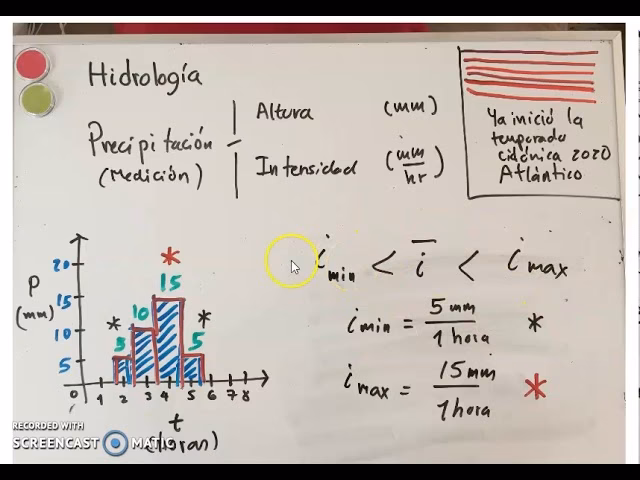 Hidrología
Precipitación
(Medición)
Altura (mm)
Intensidad (mm/hr)
Ya inició la
temporada
ciclónica 2020
Atlántico
P
(mm)
20
15
10
5
0 1 2 3 4 5 6 7 8
t
*
15
* 10 *
5 5
i min < i̅ < i max
i min = 5 mm / 1 hora *
i max = 15 mm / 1 hora *
RECORDED WITH
SCREENCAST MATIC